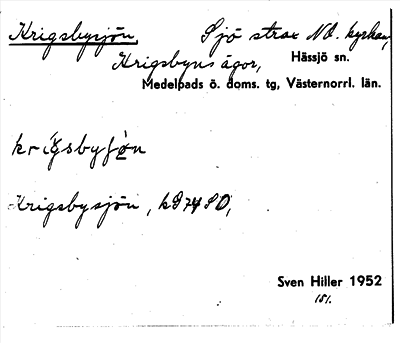 Krigsbysjön, Sjö strax NO. kyrkan,
Krigsbyns ägor, Hässjö sn.
Medelpads ö. doms. tg, Västernorrl. län.
krigsbyʃøn
Krigsbysjön, k974SO,
Sven Hiller 1952
151.